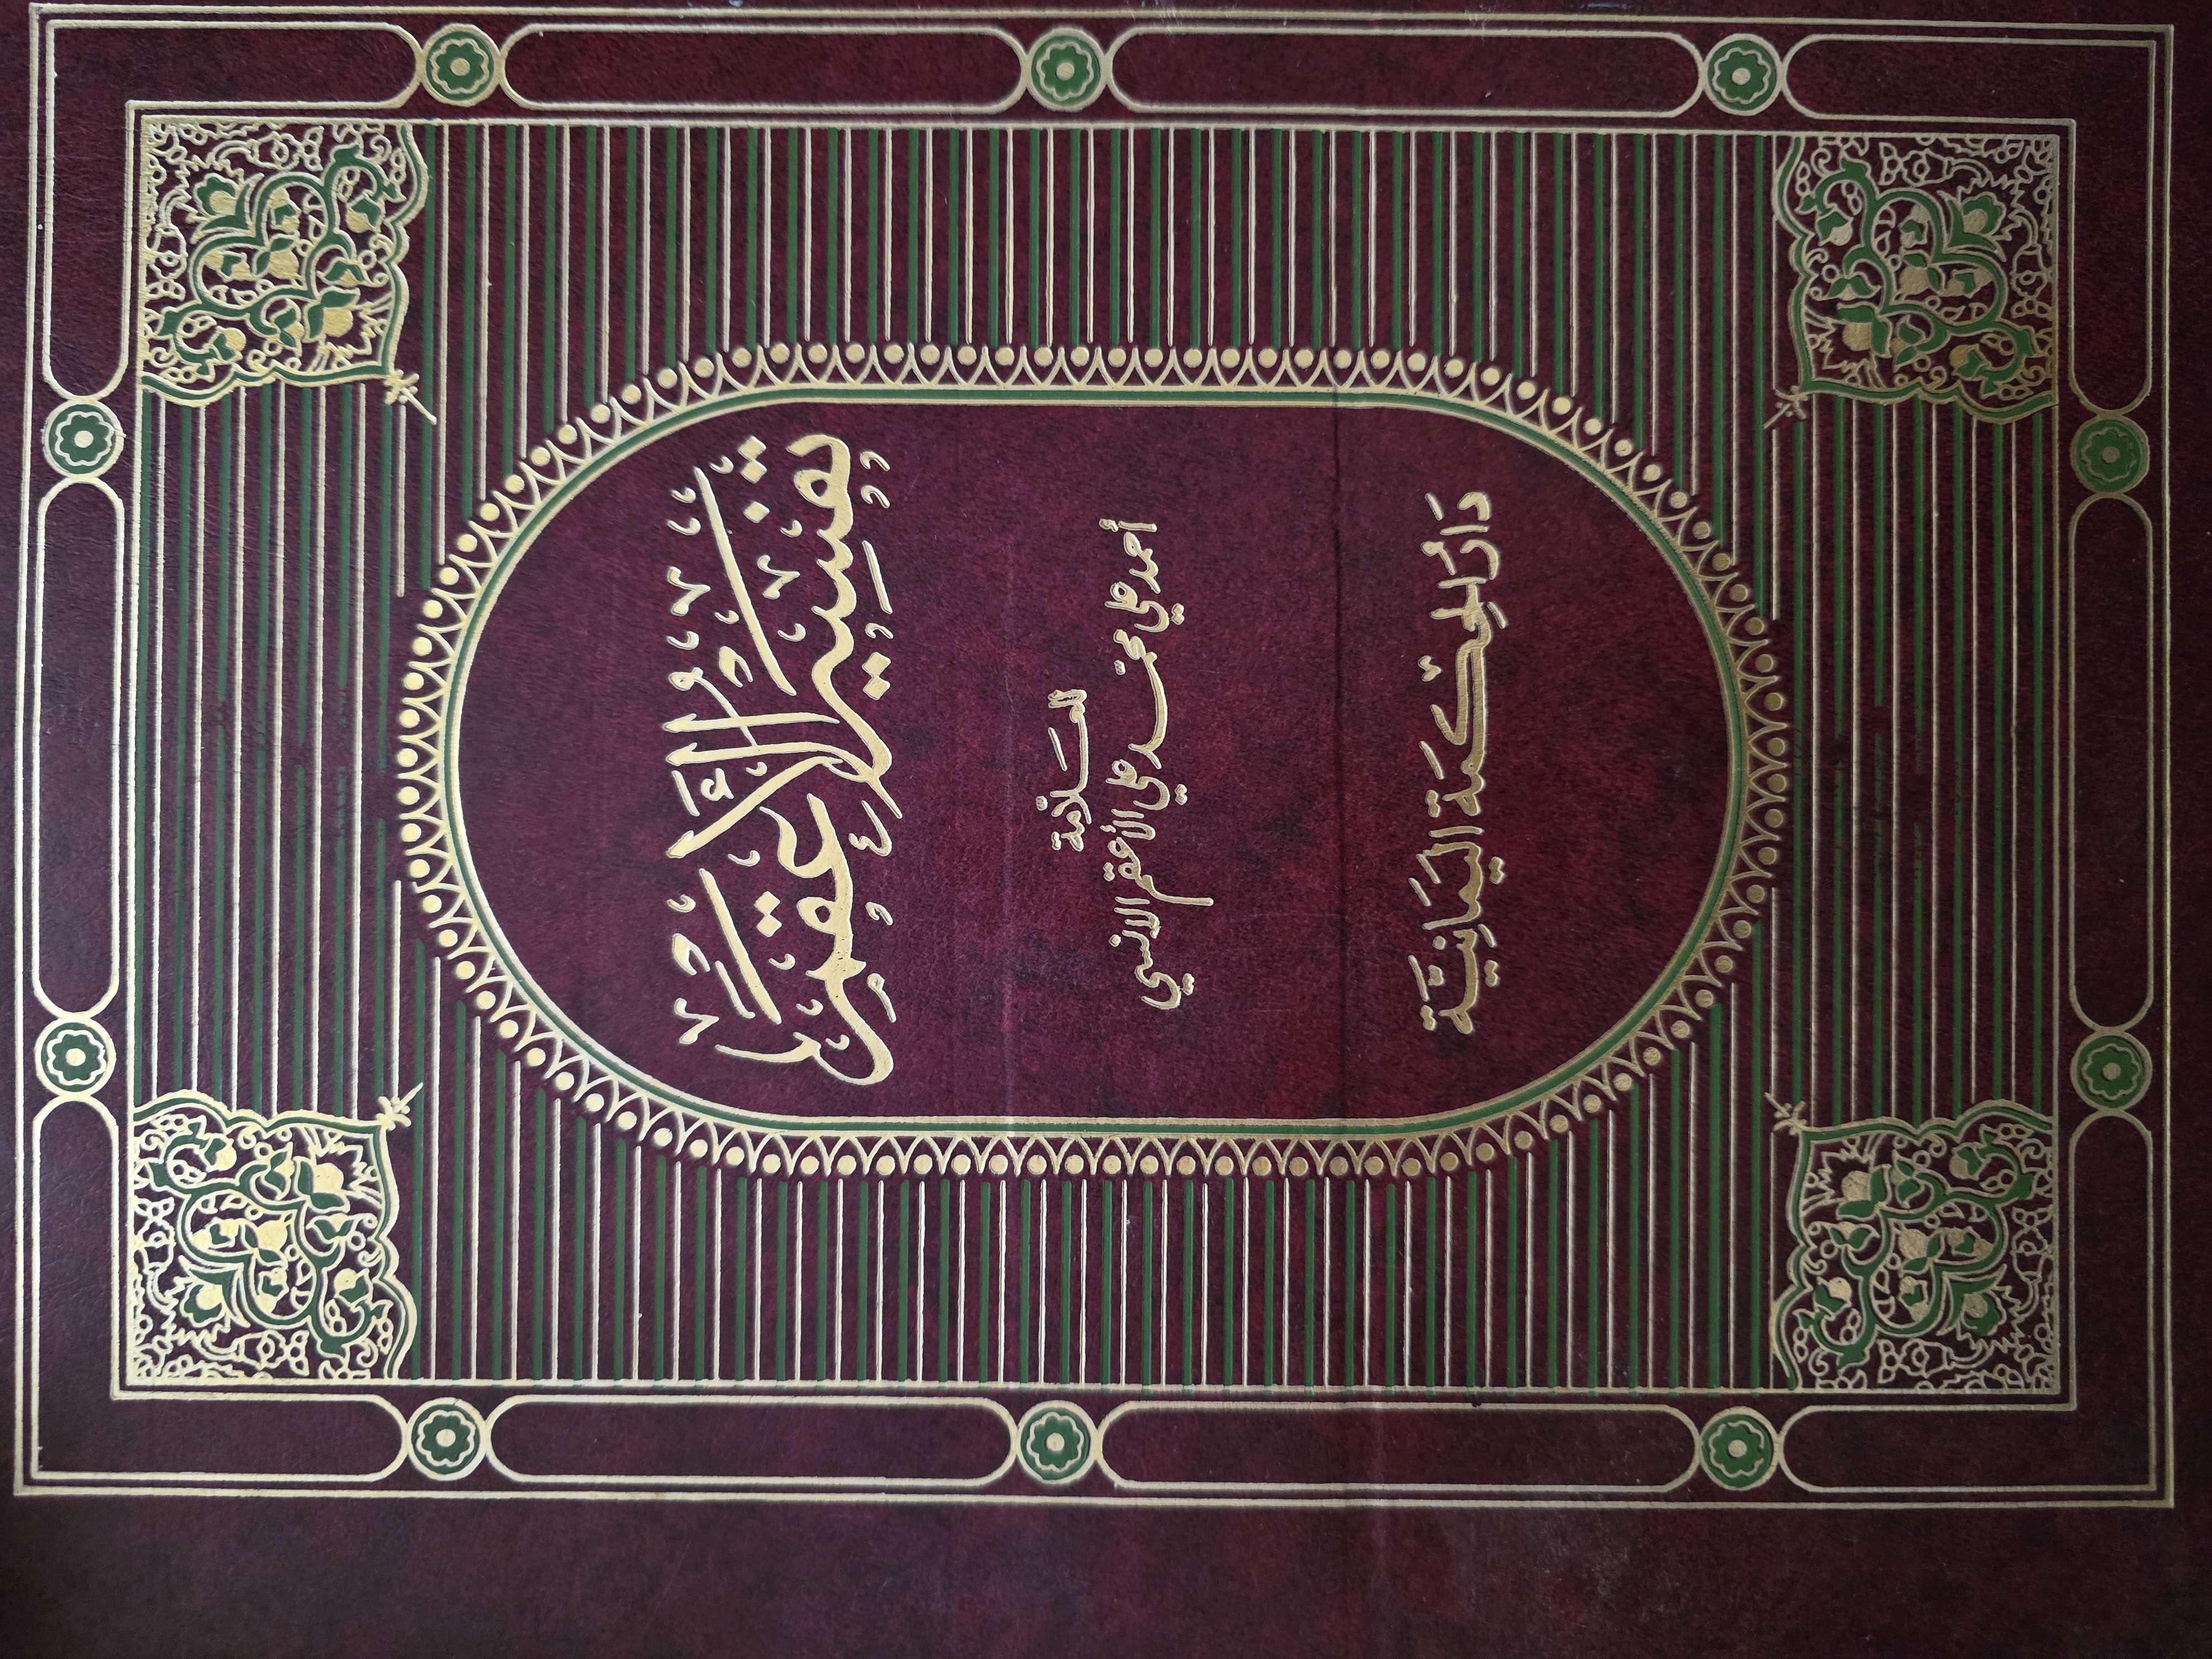 تفسير الأعقم
العلامة
أحمد علي محمد علي الأعقم الانسي
دار الحكمة اليمانية